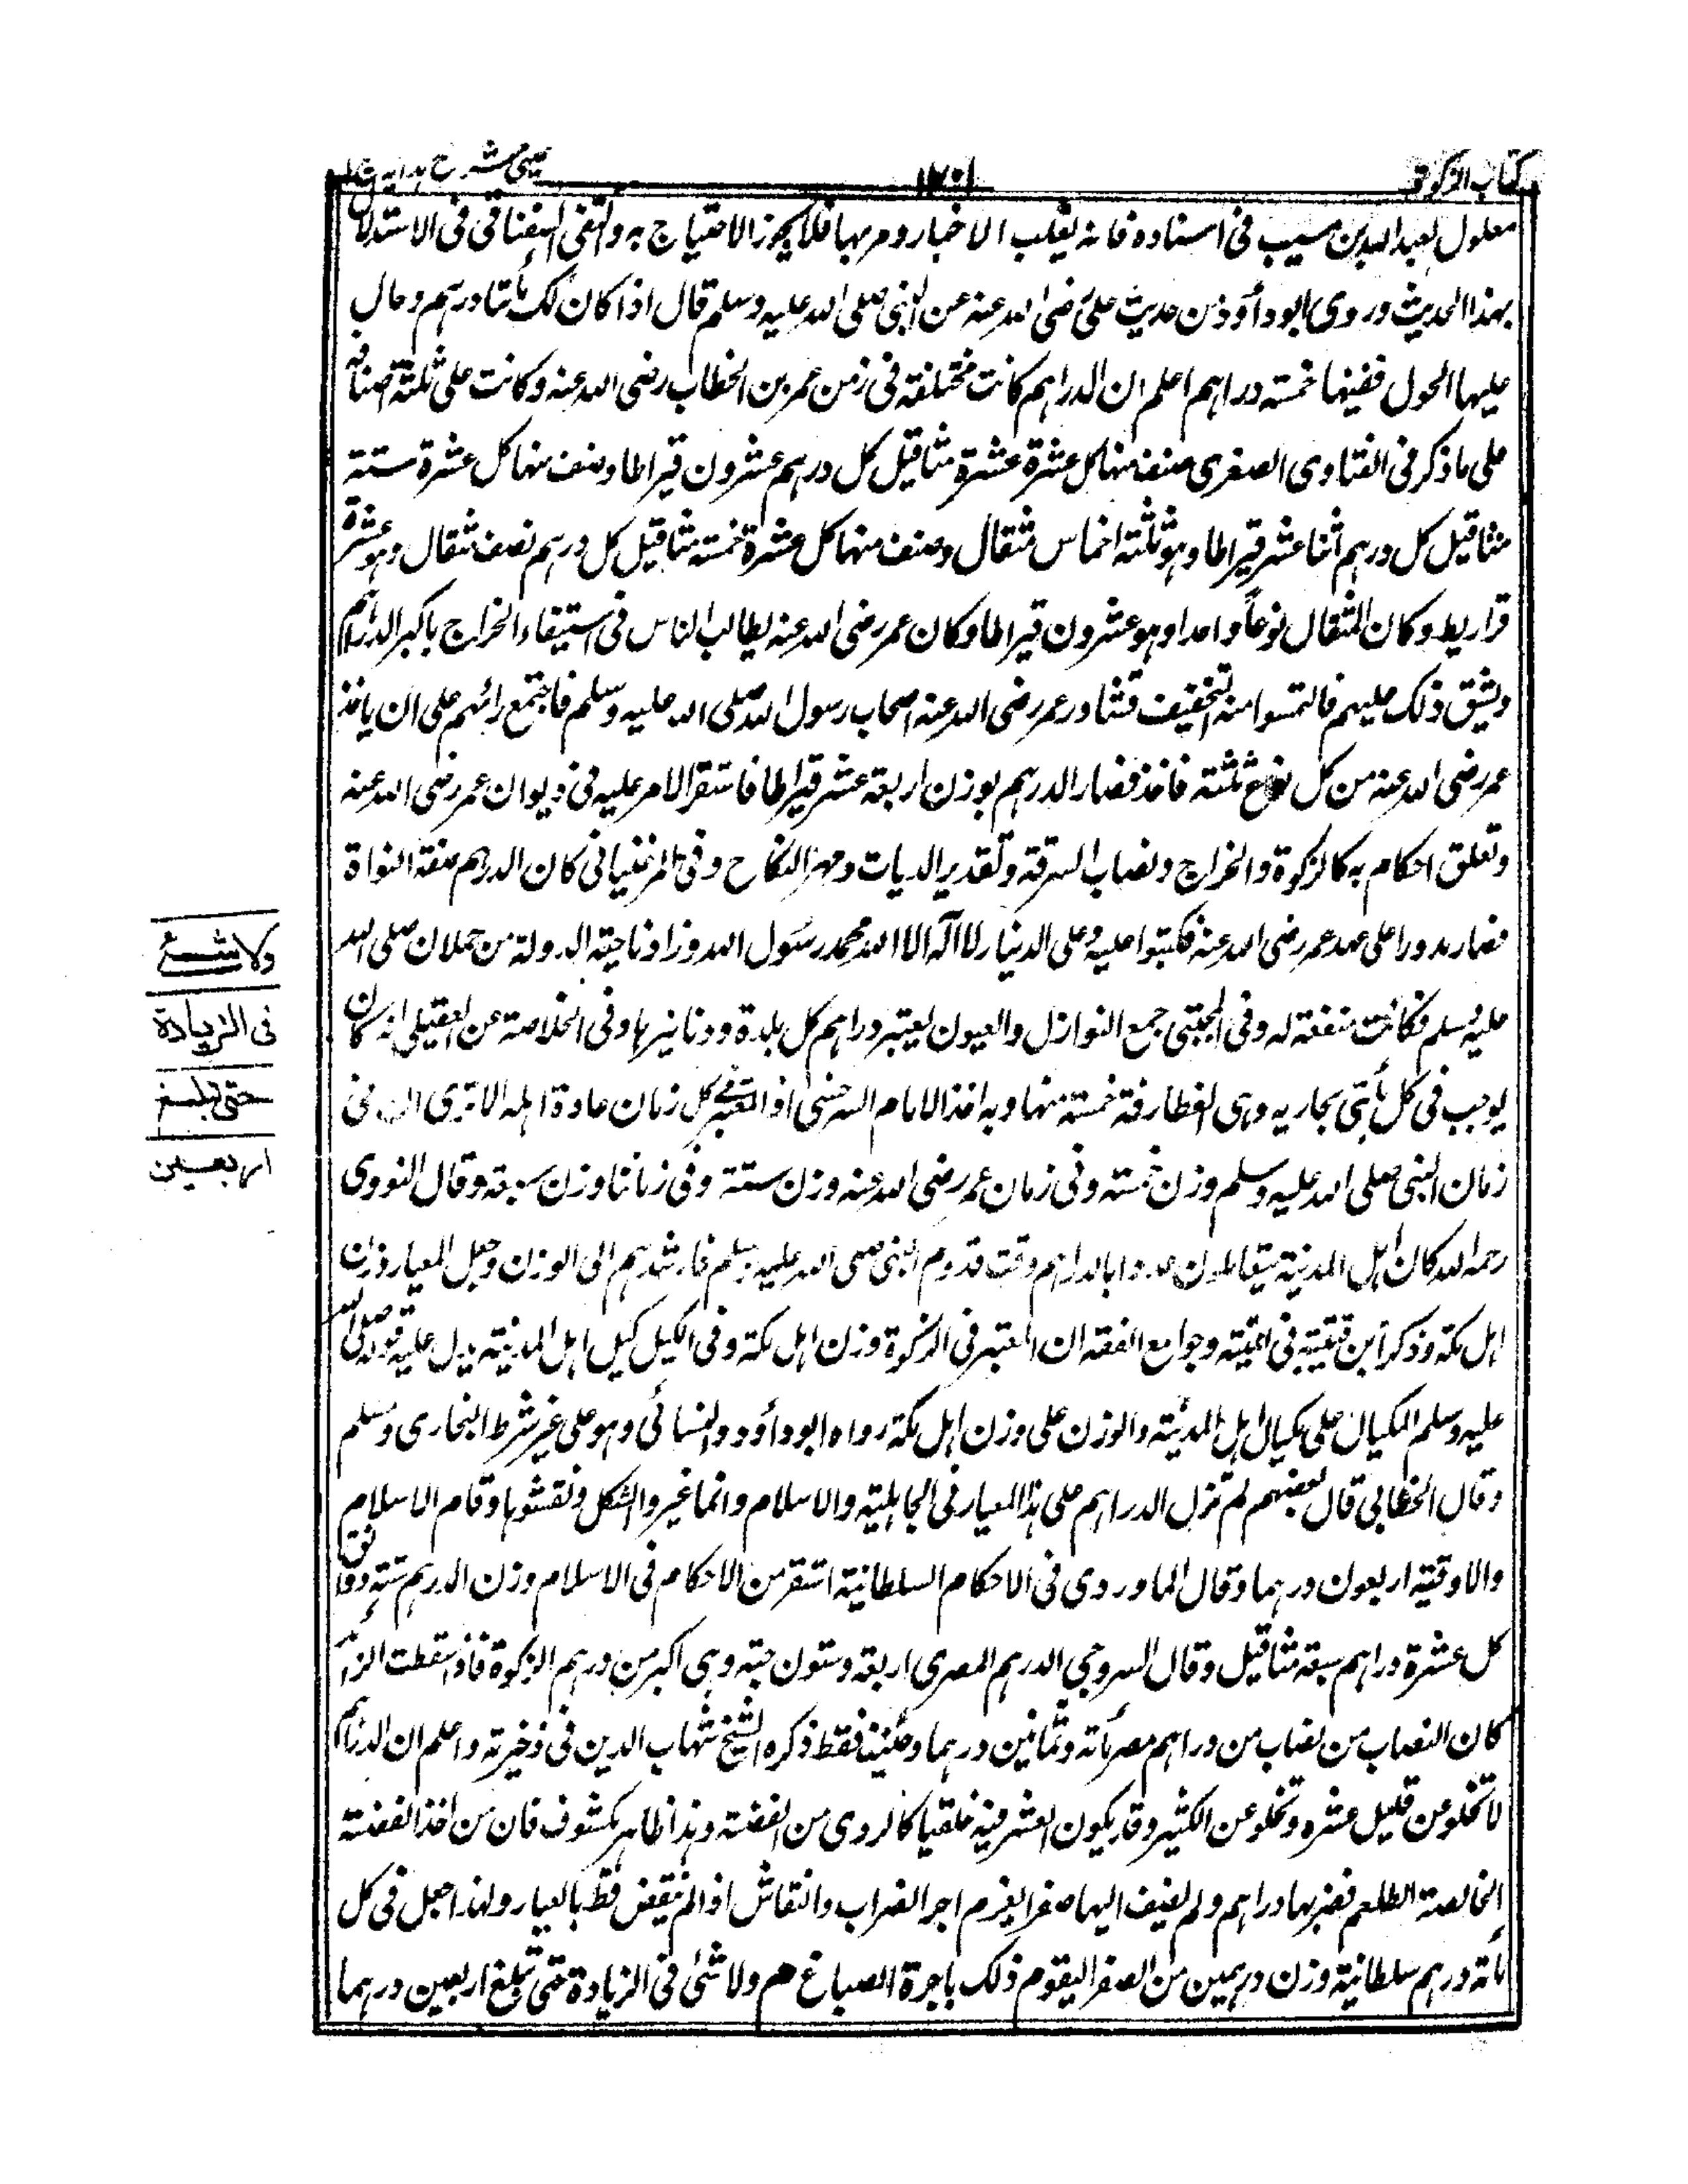 كتاب الزكوة
١٢٠١
عينى شرح هدايه
معلول بعبد الله بن مسيب فى اسناده فانه يقلب الاخبار فلا يجوز الاحتياج به واكتفى السفناقى فى الاستدلال
بهذا الحديث وروى ابو داؤد من حديث على رضى الله عنه عن النبى صلى الله عليه وسلم قال اذا كان لك مأتا درهم وحال
عليها الحول ففيها خمسة دراهم اعلم ان الدراهم كانت مختلفة فى زمن عمر بن الخطاب رضى الله عنه وكانت على ثلثة اصناف
على ما ذكر فى الفتاوى الصغرى صنف منها كل عشرة عشرة مثاقيل كل درهم عشرون قيراطا وصنف منها كل عشرة ستة
مثاقيل كل درهم اثنا عشر قيراطا وهو ثلثة اخماس مثقال وصنف منها كل عشرة خمسة مثاقيل كل درهم نصف مثقال وهو عشرة
قراريط وكان المثقال نوعاً واحدا وهو عشرون قيراطا وكان عمر رضى الله عنه يطالب الناس فى استيفاء الخراج باكبر الدراهم
ويشق ذلك عليهم فالتمسوا منه التخفيف فشاور عمر رضى الله عنه اصحاب رسول الله صلى الله عليه وسلم فاجتمع رائهم على ان ياخذ
عمر رضى الله عنه من كل نوع ثلثة فاخذ فصار الدرهم بوزن اربعة عشر قيراطا فاستقر الامر عليه فى ديوان عمر رضى الله عنه
وتعلق احكام به كالزكوة والخراج ونصاب السرقة وتقدير الديات ومهر النكاح وفى المرغنيانى كان الدرهم النواة
فصار مدورا على عهد عمر رضى الله عنه فكتبوا عليه وعلى الدينار لا اله الا الله محمد رسول الله وزاد ناصحة الدولة من حملان صلى الله
عليه وسلم فكانت منفعة له وفى المجتبى جمع النوازل والعيون يعتبر دراهم كل بلدة ودنانيرها وفى الخلاصة عن العقيلى انه كان
يوجب فى كل مأتى بخاريه وهى الغطارفة خمسة منها وبه اخذ الامام السرخسى اذ المعتبر كل زمان عادة اهله الا ترى ان فى
زمان النبى صلى الله عليه وسلم وزن خمسة وفى زمان عمر رضى الله عنه وزن ستة وفى زماننا وزن سبعة وقال النووى
رحمه الله كان اهل المدينة يتعاملون عددا بالدراهم وقت قدوم النبى صلى الله عليه وسلم فارشدهم الى الوزن وجعل المعيار وزن
اهل مكة وذكر ابن قتيبة فى وجوامع الفقه ان المعتبر فى الزكوة وزن اهل مكة وفى الكيل كيل اهل المدينة يدل عليه قوله صلى الله
عليه وسلم المكيال على مكيال اهل المدينة والوزن على وزن اهل مكة رواه ابو داؤد والنسائى وهو على غير شرط البخارى ومسلم
وقال الخطابى قال بعضهم لم تزل الدراهم على هذا المعيار فى الجاهلية والاسلام وانما غيروا الشكل ونقشوها وقام الاسلام
والاوقية اربعون درهما وقال الماوردى فى الاحكام السلطانية استقر من الاحكام فى الاسلام وزن الدرهم ستة دوانق
كل عشرة دراهم سبعة مثاقيل وقال السروجى الدرهم المصرى اربعة وستون حبة وهى اكبر من درهم الزكوة فاذا سقطت الزائد
كان النصاب من نصاب من دراهم مصر مأته وثمانين درهما وحبتين فقط ذكره الشيخ شهاب الدين فى ذخيرته واعلم ان الدراهم
لا تخلو عن قليل عشره وتخلو عن الكثير وقد يكون العشر فيه خلقيا كالردى من الفضة وهذا ظاهر مكشوف فان من اخذ الفضة
الخالصة فضربها دراهم ولم يضف اليها صفرا يغرم اجر الضراب والنقاش اذا لم ينقص قط بالعيار ولهذا جعل فى كل
مأته درهم سلطانية وزن درهمين من الصفر ليقوم ذلك باجرة الصباغ هم ولا شئ فى الزيادة حتى تبلغ اربعين درهما
ولا شئ
فى الزيادة
حتى تبلغ
اربعين